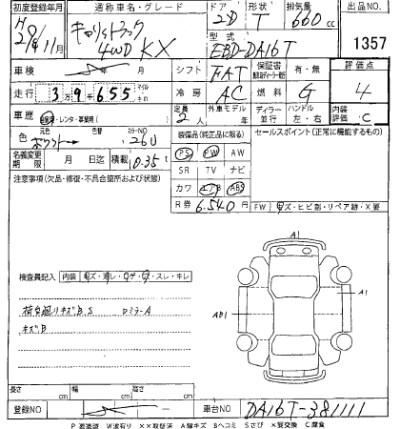 初度登録年月 通称車名・グレード ドア 形状 排気量 出品NO.
H29年11月 キャリィトラック 4WD KX 2D T 660cc 1357
型式 EBD-DA16T
車検 月 シフト FAT 保証書 有・無 評価点
走行 3万9千655 冷房 AC 燃料 G 4
車歴 自家用・レンタ・事業用 定員 2人 外車モデル 年 ディーラー 並行 ハンドル 左・右 内装評価 C
色 元色 ホワイト 色替 カラーNO 26U 装備品(純正品に限る) セールスポイント(正常に機能するもの)
名義変更期限 月 日迄 積載 0.35t PS PW AW
SR TV ナビ
注意事項(欠品・修復・不具合箇所および状態) カワ エアB ABS
R券 6,540円 FW キズ・ヒビ割・リペア跡・X要
A1
検査員記入 内装 キズ・汚レ・コゲ・穴・スレ・キレ
A1
荷台廻りキズB、S ロミラーA AB1
キズB
A1
長さ cm 幅 cm 高さ cm
登録NO 車台NO DA16T-381111
P 要塗装 W波有り XX取替済 A線キズ Bヘコミ Sさび X要交換 C腐食